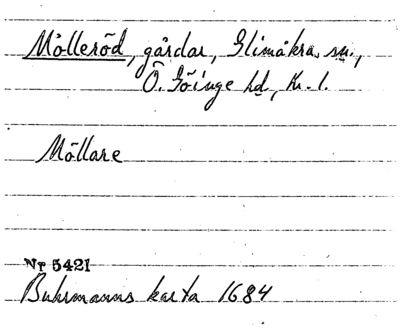 Mölleröd, gårdar, Glimåkra sn.,
Ö. Göinge hd, Kr. l.
Möllare
Nr 5421
Buhrmanns karta 1684